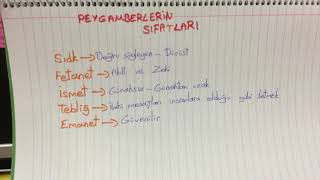 PEYGAMBERLERİN
SIFATLARI
Sıdk → Doğru söyleyen - Dürüst
Fetanet → Akıllı ve Zeki
İsmet → Günahsız - Günahtan uzak
Tebliğ → İlahi mesajları insanlara olduğu gibi iletmek
Emanet → Güvenilir